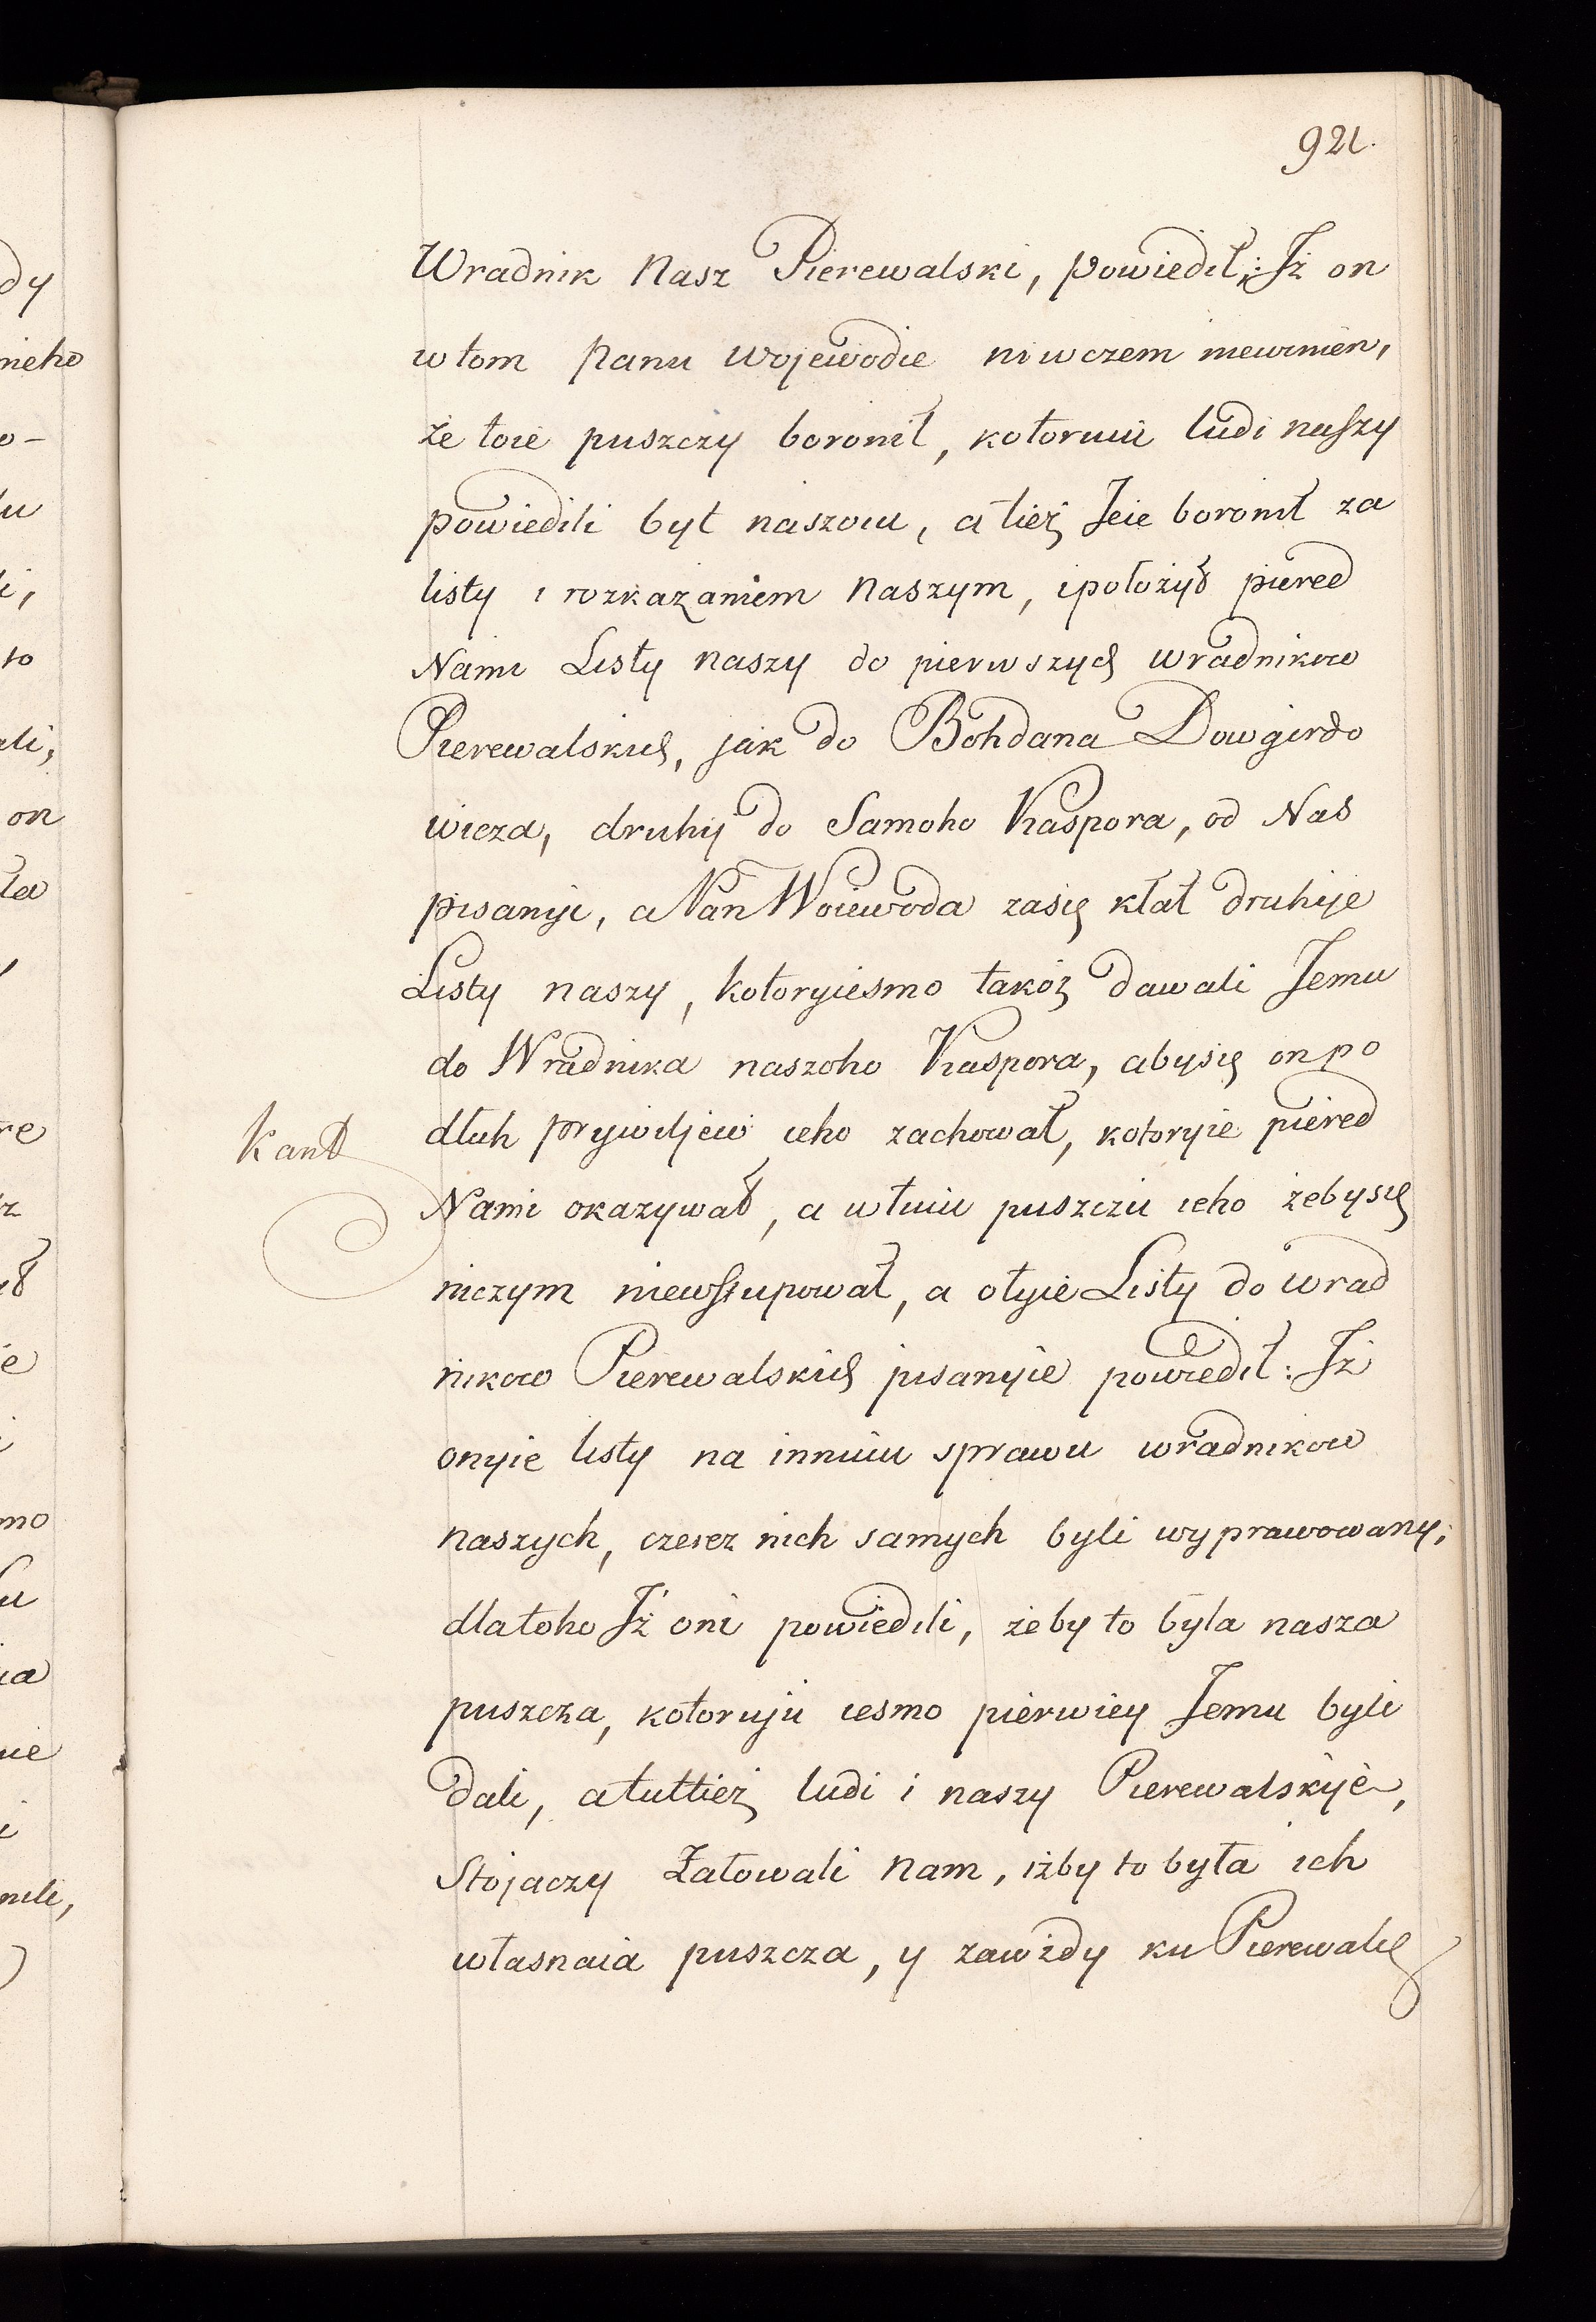 921.
Wradnik Nasz Pierewalski, powiedił; Iż on
wtom Panu Wojewodie niwczem niewinien,
że toie puszczy boronił, kotoruiu ludi naszy
powiedili był naszoiu, a tież Ieie boronił za
listy i rozkazaniem Naszym, ipołożył piered
Nami Listy naszy do pierwszych wradnikow
Pierewalskich, jak do Bohdana Dowgirdo
wicza, druhij do Samoho Kaspora, od Nas
pisanyi, a Pan Woiewoda zasię kłał druhije
Listy naszy, kotoryiesmo takóż dawali Iemu
do Wradnika naszoho Kaspora, abysię on po
dłuh prywiljew ieho zachował, kotoryie piered
Kant
Nami okazywał, a wtuiu puszczu ieho żebysię
niczym niewstupował, a otyie Listy do wrad
nikow Pierewalskich pisanyie powiedił: Iż
onyie listy na innuiu sprawu wradnikow
naszych, czerez nich samych byli wyprawowany,
dlatoho Iż oni powiedili, żeby to była nasza
puszcza, kotoruju iesmo pierwiey Iemu byli
dali, a tuttież ludi i naszy Pierewalskije,
Stojaczy Żałowali Nam, iżby to była ich
własnaia puszcza, y zawżdy ku Pierewałę